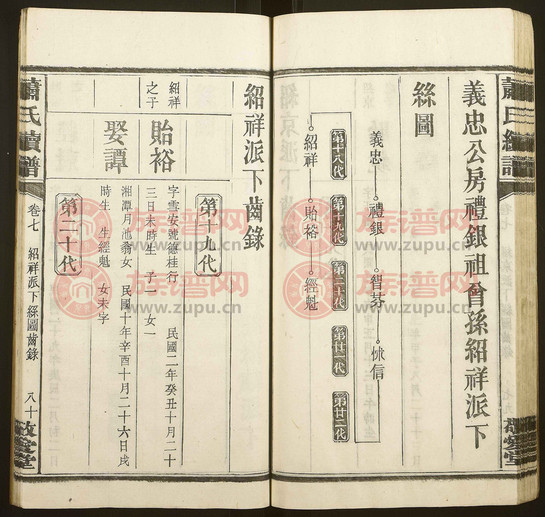 義忠公房禮銀祖曾孫紹祥派下
絲圖
義忠 禮銀 智芬 悚信
第十八代 第十九代 第二十代 第廿一代 第廿二代
紹祥 貽裕 經魁
敬愛堂
紹祥派下齒錄
第十九代
紹祥之子
貽裕
字雲安號德桂行 民國二年癸丑十月二十
三日未時生 子一 女一
娶譚
湘潭月池翁女 民國十年辛酉十月二十六日戌
時生 生經魁 女未字
第二十代
蕭氏續譜
卷七 紹祥派下絲圖齒錄 八十
敬愛堂
族譜网
www.zupu.cn
族譜网
www.zupu.cn
族譜网
www.zupu.cn
族譜网
www.zupu.cn